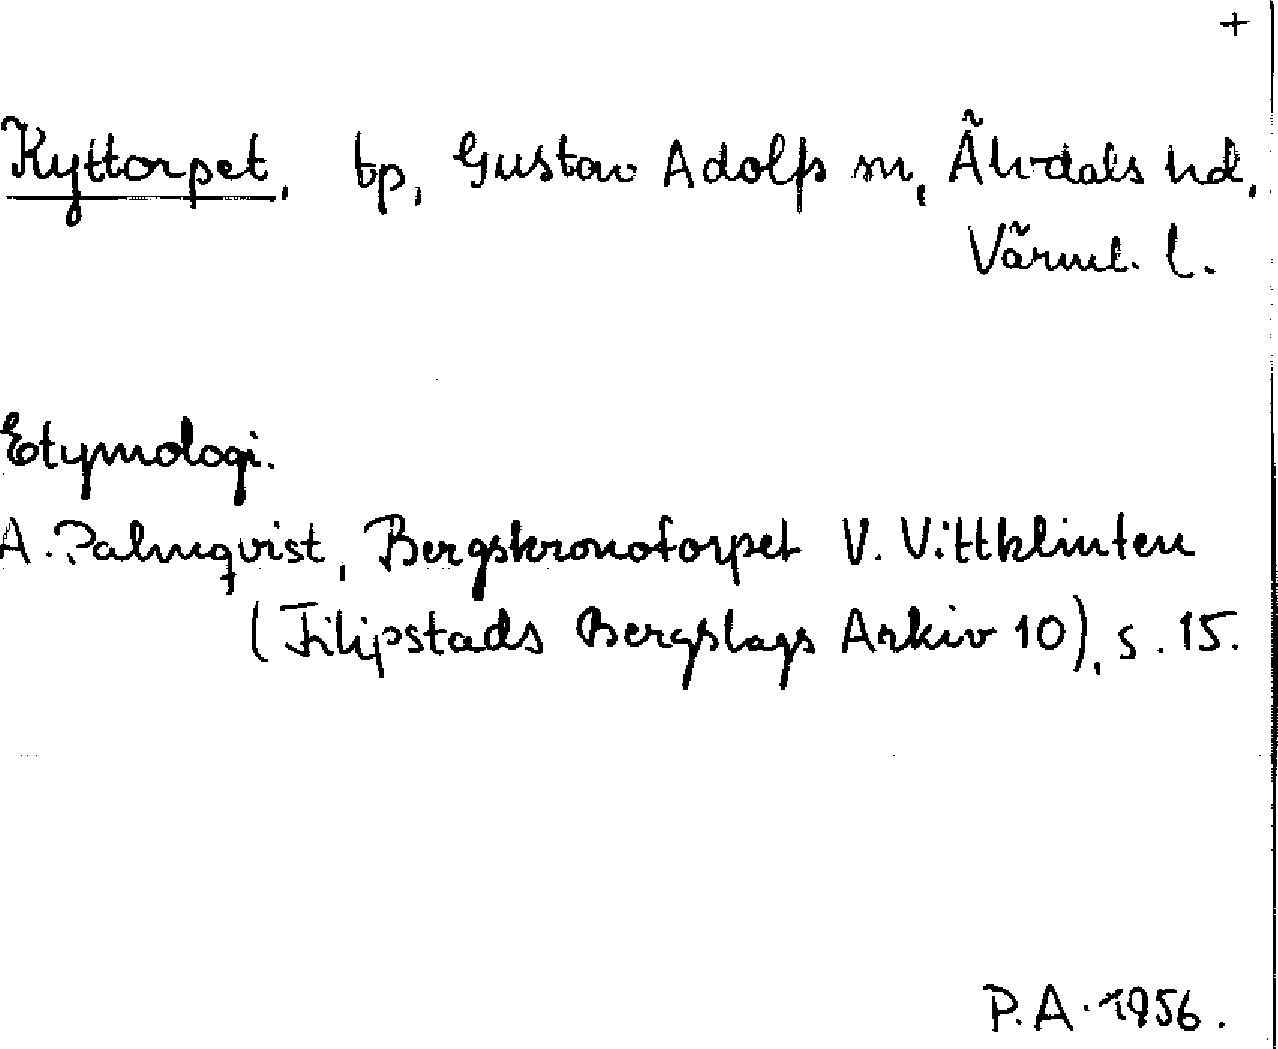 +
Kyttorpet, tp, Gustav Adolfs sn, Älvdals hd,
Värml. l.
Etymologi.
A. Palmqvist, Bergskronotorpet V. Vittklinten
(Filipstads Bergslags Arkiv 10), s. 15.
P. A. 1956.